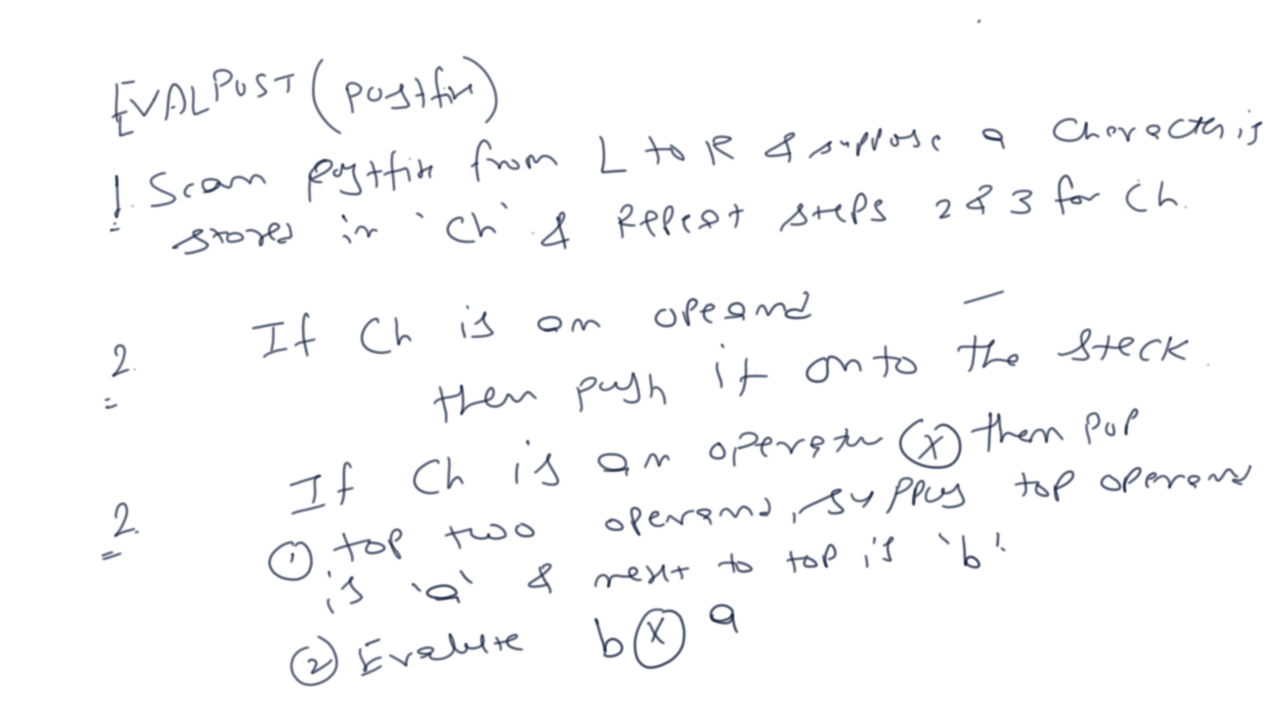 EVALPOST (postfix)
1. Scan Postfix from L to R & suppose a Character is
stored in 'Ch' & Repeat steps 2 & 3 for Ch.
2. If Ch is an opeand
then push it onto the stack.
2. If Ch is an operator (X) then pop
① top two operand, suppos top operand
is 'a' & next to top is 'b'.
② Evalute b (X) a